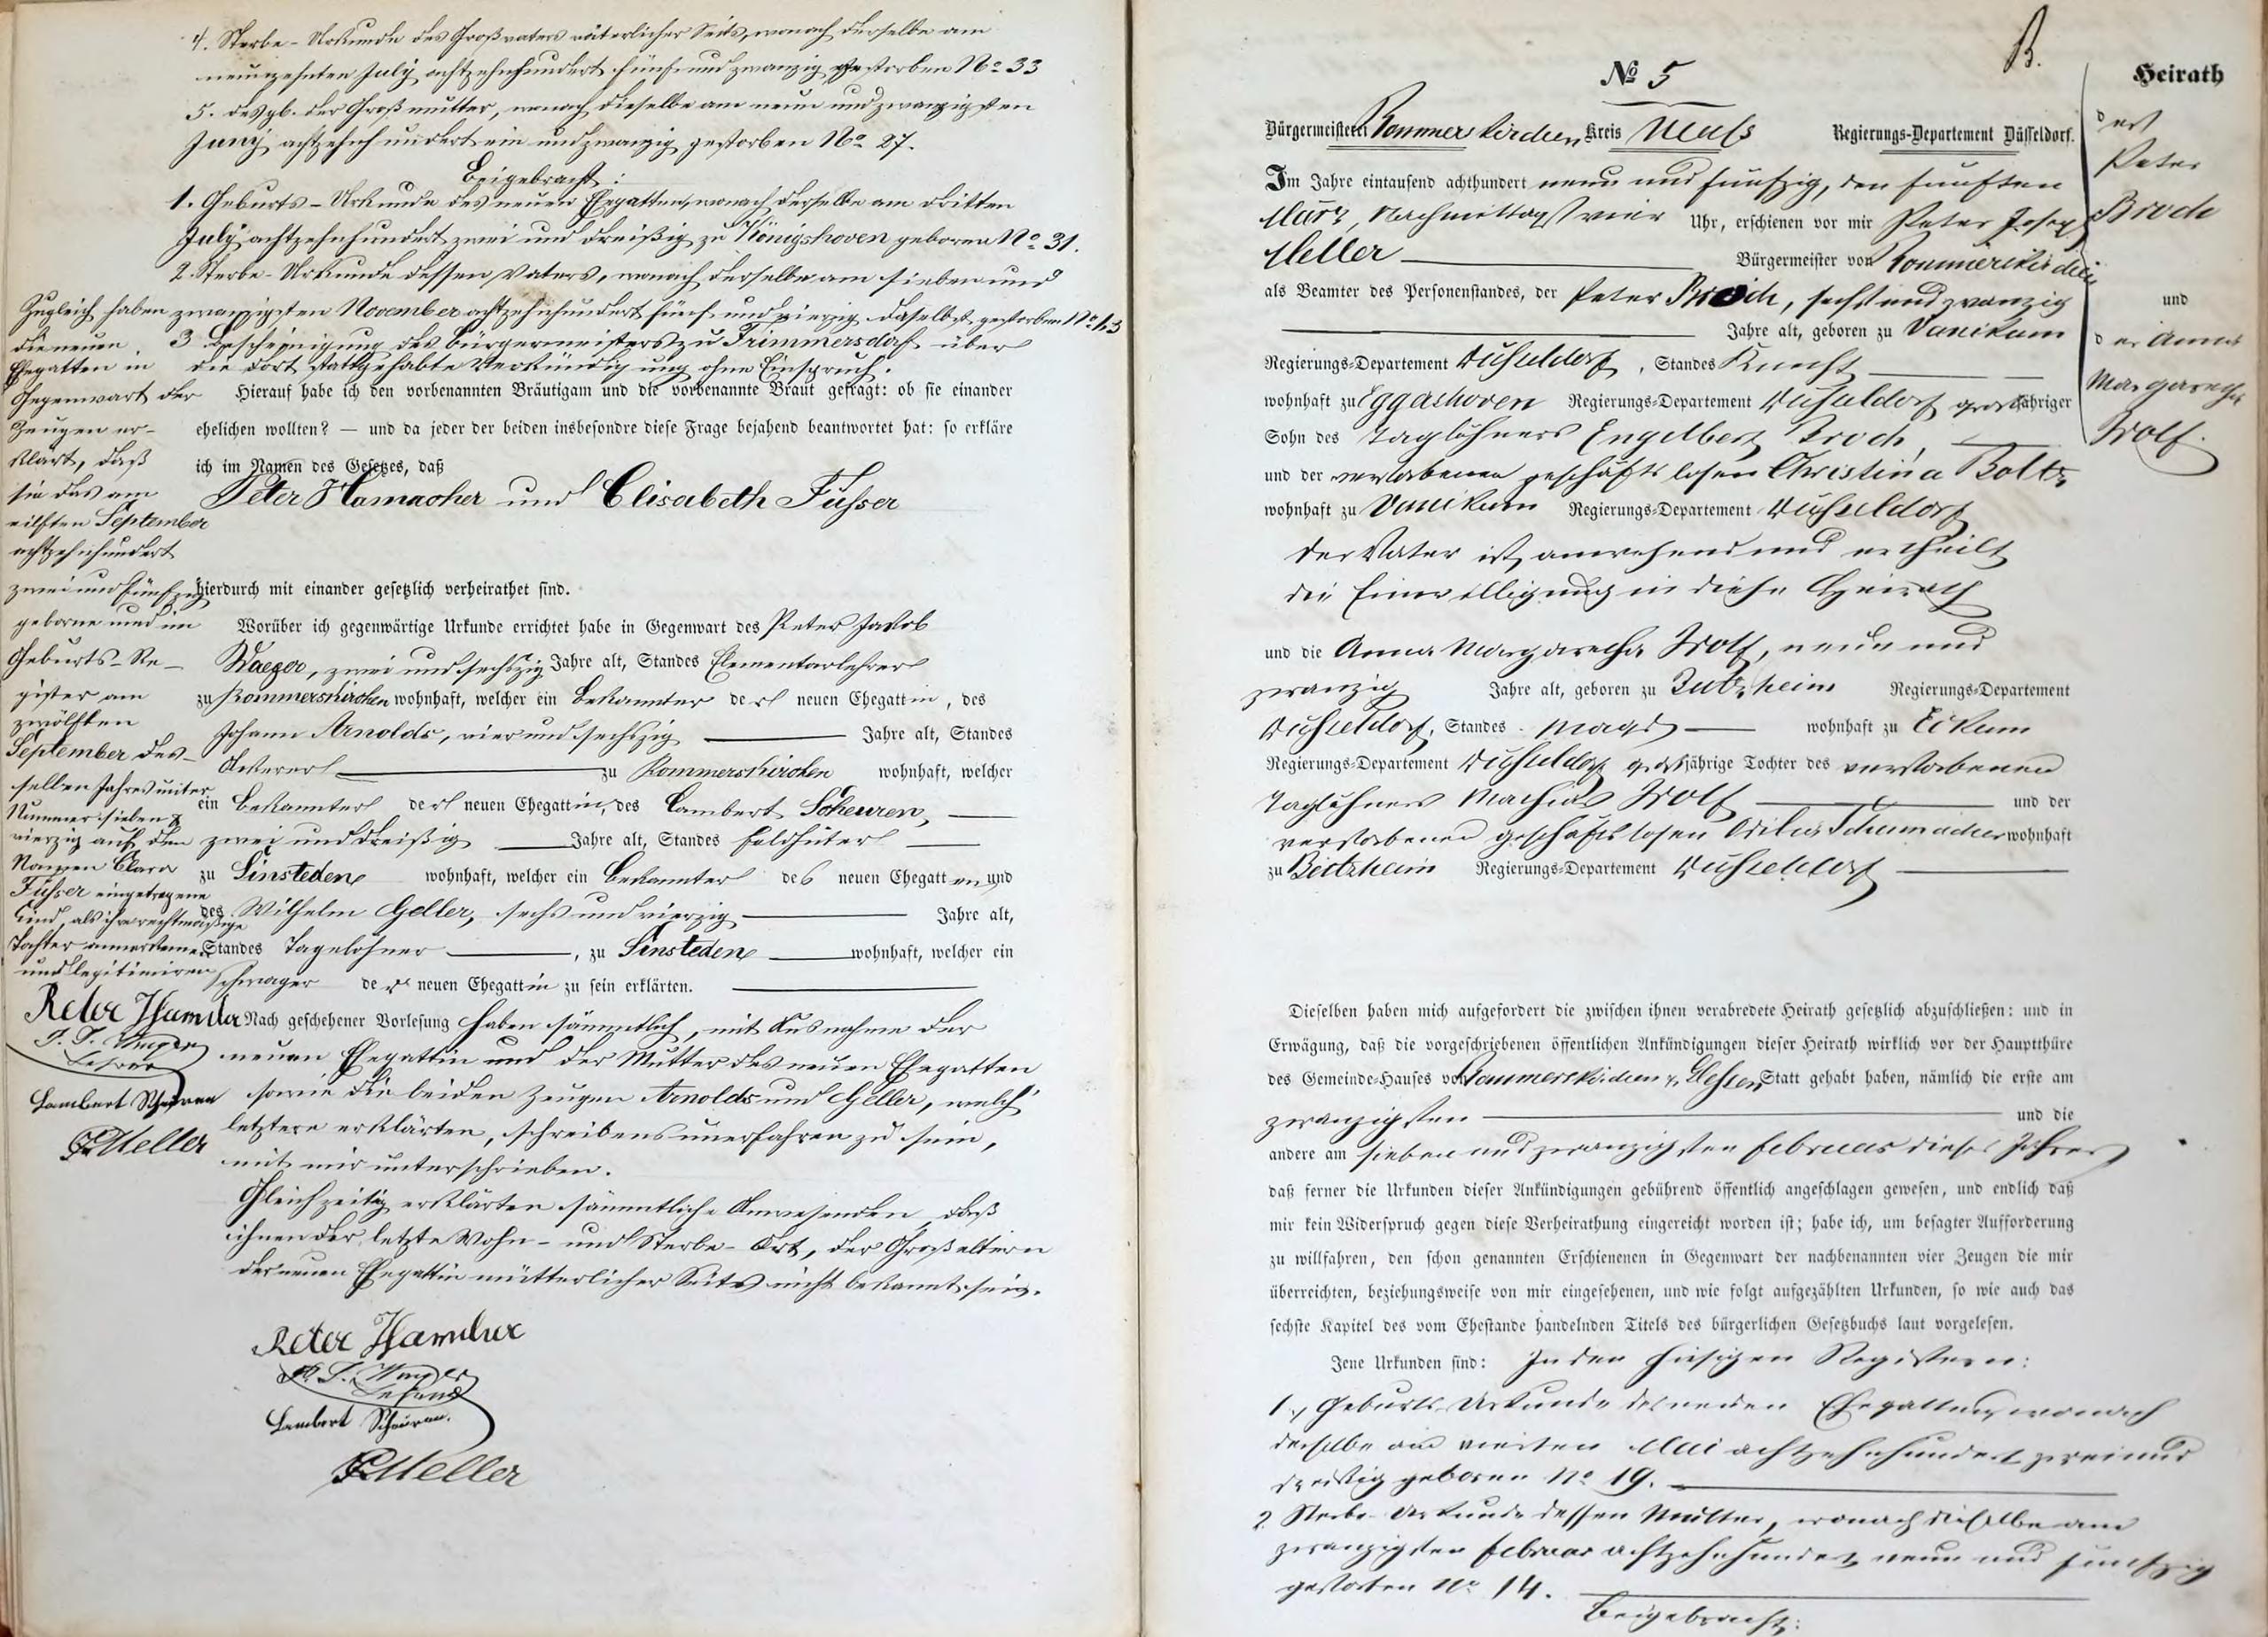 4. Sterbe-Urkunde des Großvaters väterlicher Seits, wonach derselbe am
neunzehnten July achtzehnhundert fünf und zwanzig gestorben No 33
5. desgl. der Großmutter, wonach dieselbe am neun und zwanzigsten
Juny achtzehnhundert ein und zwanzig gestorben No 27.
Beigebracht:
1. Geburts-Urkunde des neuen Ehegatten, wonach derselbe am dritten
July achtzehnhundert zwei und dreißig zu Königshoven geboren No 31.
2. Sterbe-Urkunde dessen Vaters, wonach derselbe am sieben und
zwanzigsten November achtzehnhundert fünf und vierzig daselbst gestorben No
3 Bescheinigung des Bürgermeisters zu Frimmersdorf über
die dort stattgehabte Verkündigung ohne Einspruch.
Hierauf habe ich den vorbenannten Bräutigam und die vorbenannte Braut gefragt: ob sie einander
ehelichen wollten? — und da jeder der beiden insbesondre diese Frage bejahend beantwortet hat: so erkläre
ich im Namen des Gesetzes, daß
Peter Hamacher und Elisabeth Füsser
hierdurch mit einander gesetzlich verheirathet sind.
Worüber ich gegenwärtige Urkunde errichtet habe in Gegenwart des Peter Jakob
Waeger, zwei und sechszig Jahre alt, Standes Elementarlehrer
zu Rommerskirchen wohnhaft, welcher ein Bekannter der neuen Ehegattin, des
Johann Arnolds, vier und sechszig Jahre alt, Standes
Ackerer zu Rommerskirchen wohnhaft, welcher
ein Bekannter der neuen Ehegattin, des Lambert Scheuren,
zwei und dreißig Jahre alt, Standes Feldhüter
zu Sinsteden wohnhaft, welcher ein Bekannter des neuen Ehegatten und
des Wilhelm Geller, sechs und vierzig Jahre alt,
Standes Tagelöhner, zu Sinsteden wohnhaft, welcher ein
Schwager der neuen Ehegattin zu sein erklärten.
Nach geschehener Vorlesung haben sämmtlich, mit Ausnahme der
neuen Ehegattin und der Mutter des neuen Ehegatten
sowie die beiden Zeugen Arnolds und Geller, welch
letztere erklärten, schreibensunerfahren zu sein,
mit mir unterschrieben.
Gleichzeitig erklärten sämmtliche Anwesenden, daß
ihnen der letzte Wohn- und Sterbe-Ort, der Großeltern
der neuen Ehegattin mütterlicher Seits nicht bekannt sein.
Lambert Scheuren.
PJMeller
Zugleich haben
die neuen
Ehegatten in
Gegenwart der
Zeugen er-
klärt, daß
sie das am
eilften September
achtzehnhundert
zwei und fünfzig
geborne und im
Geburts-Re-
gister am
zwölften
September des-
selben Jahres unter
Nummer sieben &
vierzig auf den
Namen Clara
Füsser eingetragene
Kind, als ihre rechtmäßige
Tochter anerkennen
und legitimiren
Lambert Scheuren
PJMeller
B.
No 5
Heirath
Bürgermeisterei Rommerskirchen Kreis Neuss Regierungs-Departement Düsseldorf.
Im Jahre eintausend achthundert neun und fünfzig, den fünften
März, Nachmittags vier Uhr, erschienen vor mir Peter Joseph
Meller Bürgermeister von Rommerskirchen
als Beamter des Personenstandes, der Peter Broich, sechs und zwanzig
Jahre alt, geboren zu Vanikum
Regierungs-Departement Düsseldorf, Standes Knecht
wohnhaft zu Eggershoven Regierungs-Departement Düsseldorf großjähriger
Sohn des Taglöhners Engelbert Broich,
und der verstorbenen geschäftslosen Christina
wohnhaft zu Vanikum Regierungs-Departement Düsseldorf
Der Vater ist anwesend und ertheilt
die Einwilligung in diese Heirath
und die Anna Margaretha Wolf, neun und
zwanzig Jahre alt, geboren zu Butzheim Regierungs-Departement
Düsseldorf, Standes Magd wohnhaft zu Eckum
Regierungs-Departement Düsseldorf großjährige Tochter des verstorbenen
Taglöhners Mathias Wolf und der
verstorbenen geschäftslosen Schumacher wohnhaft
zu Butzheim Regierungs-Departement Düsseldorf
Dieselben haben mich aufgefordert die zwischen ihnen verabredete Heirath gesetzlich abzuschließen: und in
Erwägung, daß die vorgeschriebenen öffentlichen Ankündigungen dieser Heirath wirklich vor der Hauptthüre
des Gemeinde-Hauses von Rommerskirchen Statt gehabt haben, nämlich die erste am
zwanzigsten und die
andere am sieben und zwanzigsten Februar dieses Jahres
daß ferner die Urkunden dieser Ankündigungen gebührend öffentlich angeschlagen gewesen, und endlich daß
mir kein Widerspruch gegen diese Verheirathung eingereicht worden ist; habe ich, um besagter Aufforderung
zu willfahren, den schon genannten Erschienenen in Gegenwart der nachbenannten vier Zeugen die mir
überreichten, beziehungsweise von mir eingesehenen, und wie folgt aufgezählten Urkunden, so wie auch das
sechste Kapitel des vom Ehestande handelnden Titels des bürgerlichen Gesetzbuchs laut vorgelesen.
Jene Urkunden sind: In den hiesigen Registern:
1., Geburts-Urkunde des neuen Ehegatten, wonach
derselbe am vierten Mai achtzehnhundert zwei und
dreißig geboren No 19.
2 Sterbe-Urkunde dessen Mutter, wonach dieselbe am
zwanzigsten Februar achtzehnhundert neun und fünfzig
gestorben No 14.
Beigebracht:
des
Peter
Broich
und
der Anna
Margaretha
Wolf.